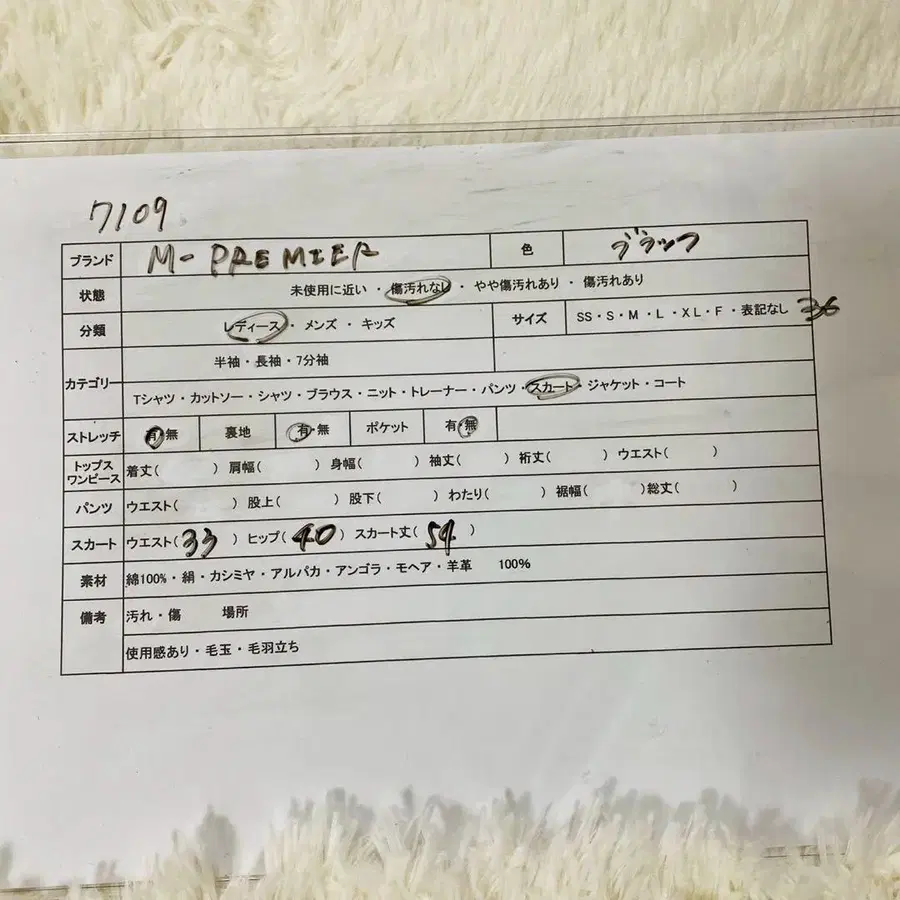 7109
ブランド M-PREMIER 色 ブラック
状態 未使用に近い ・ 傷汚れなし ・ やや傷汚れあり ・ 傷汚れあり
分類 レディース ・ メンズ ・ キッズ サイズ SS・S・M・L・XL・F・表記なし 36
カテゴリー 半袖・長袖・7分袖
Tシャツ・カットソー・シャツ・ブラウス・ニット・トレーナー・パンツ・スカート・ジャケット・コート
ストレッチ 有・無 裏地 有・無 ポケット 有・無
トップス ワンピース 着丈( ) 肩幅( ) 身幅( ) 袖丈( ) 裄丈( ) ウエスト( )
パンツ ウエスト( ) 股上( ) 股下( ) わたり( ) 裾幅( ) 総丈( )
スカート ウエスト(33) ヒップ(40) スカート丈(54)
素材 綿100%・絹・カシミヤ・アルパカ・アンゴラ・モヘア・羊革 100%
備考 汚れ・傷 場所
使用感あり・毛玉・毛羽立ち